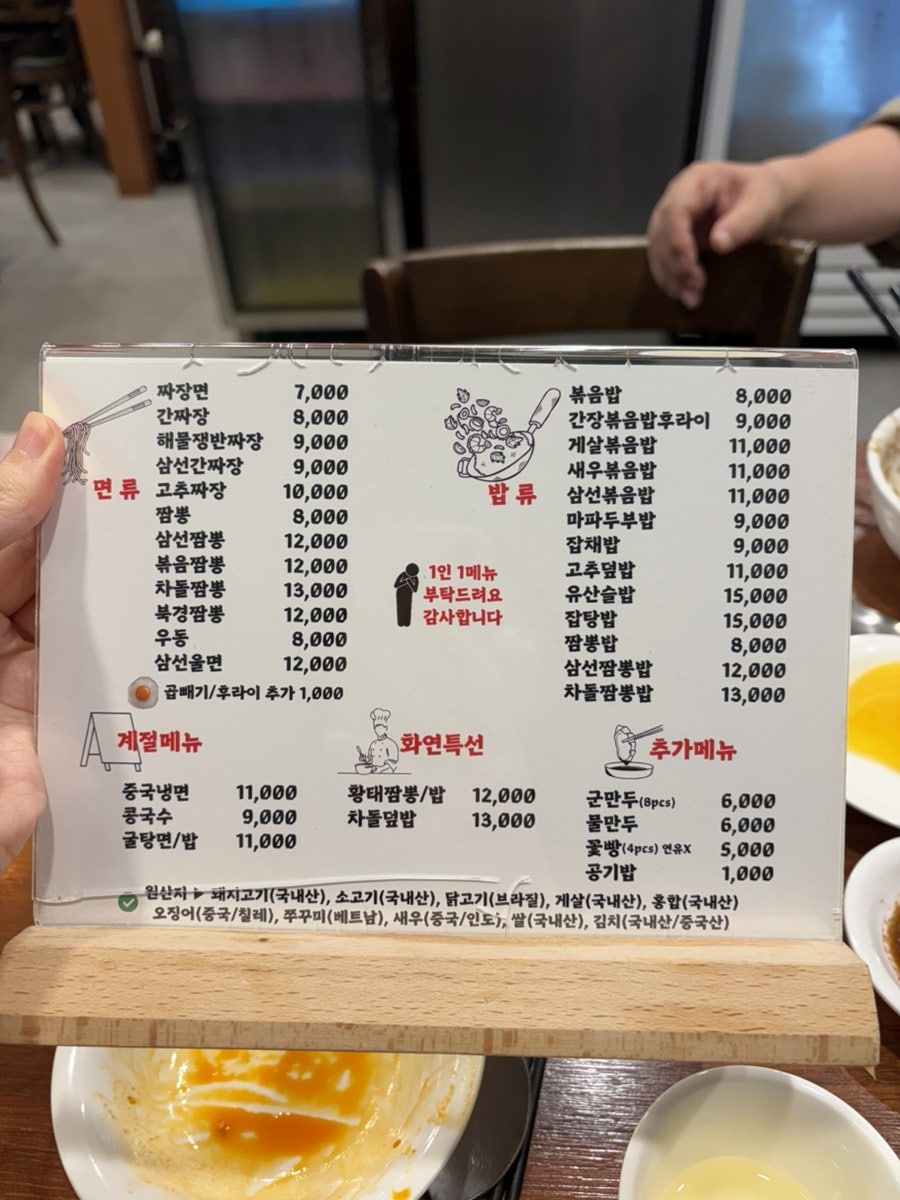 짜장면 7,000
간짜장 8,000
해물쟁반짜장 9,000
삼선간짜장 9,000
고추짜장 10,000
짬뽕 8,000
삼선짬뽕 12,000
볶음짬뽕 12,000
차돌짬뽕 13,000
북경짬뽕 12,000
우동 8,000
삼선울면 12,000
면 류
곱빼기/후라이 추가 1,000
1인 1메뉴
부탁드려요
감사합니다
밥 류
볶음밥 8,000
간장볶음밥후라이 9,000
게살볶음밥 11,000
새우볶음밥 11,000
삼선볶음밥 11,000
마파두부밥 9,000
잡채밥 9,000
고추덮밥 11,000
유산슬밥 15,000
잡탕밥 15,000
짬뽕밥 8,000
삼선짬뽕밥 12,000
차돌짬뽕밥 13,000
계절메뉴
중국냉면 11,000
콩국수 9,000
굴탕면/밥 11,000
화연특선
황태짬뽕/밥 12,000
차돌덮밥 13,000
추가메뉴
군만두(8pcs) 6,000
물만두 6,000
꽃빵(4pcs) 연유X 5,000
공기밥 1,000
원산지 ▶ 돼지고기(국내산), 소고기(국내산), 닭고기(브라질), 게살(국내산), 홍합(국내산)
오징어(중국/칠레), 쭈꾸미(베트남), 새우(중국/인도), 쌀(국내산), 김치(국내산/중국산)